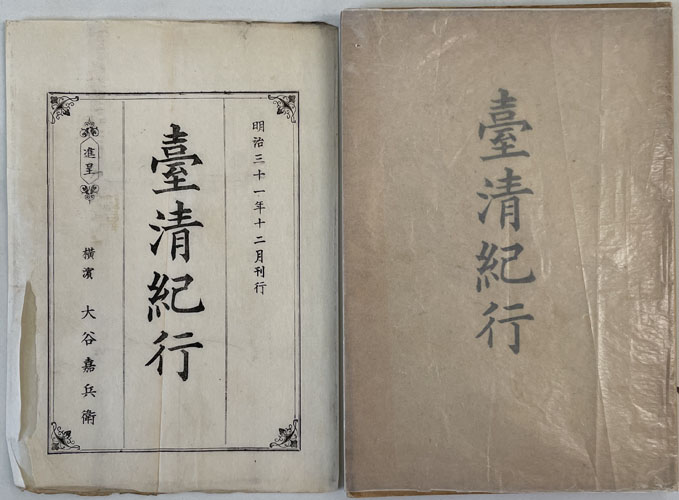 明治三十一年十二月刊行
臺清紀行
進呈
横濱 大谷嘉兵衛
臺清紀行